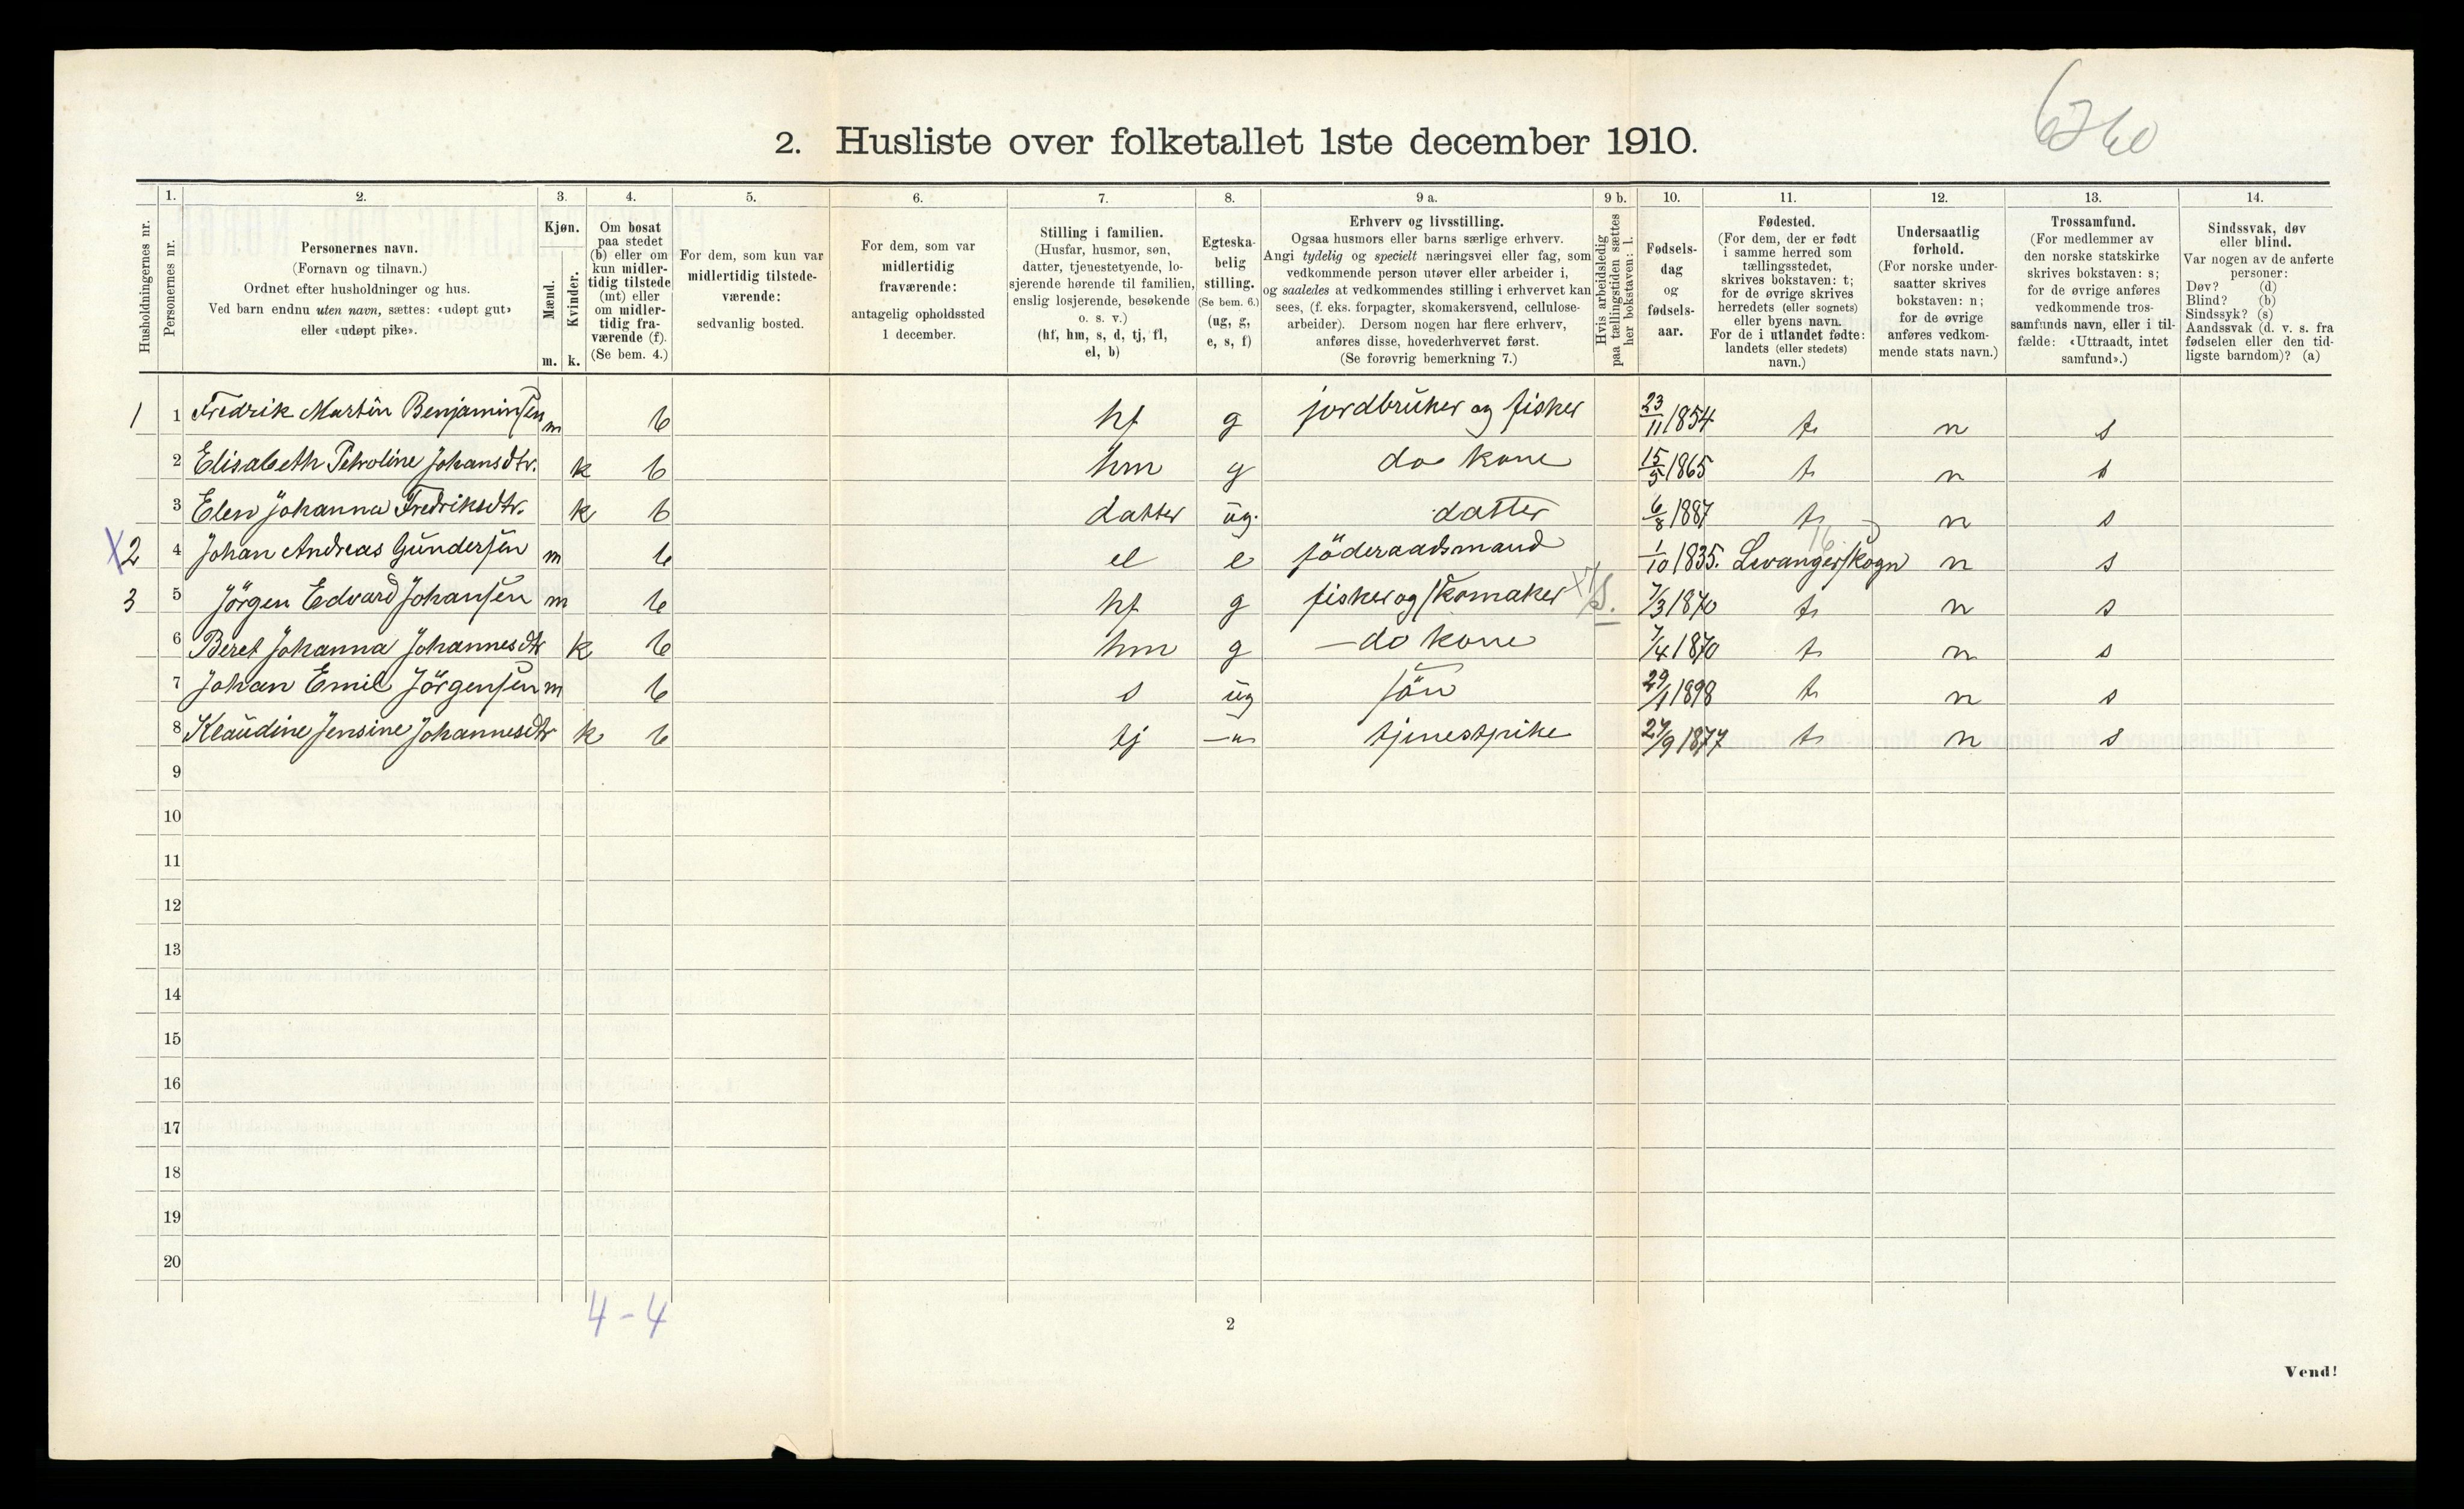 6260
2. Husliste over folketallet 1ste december 1910.
Husholdningernes nr.
1. Personernes nr.
2. Personernes navn. (Fornavn og tilnavn.) Ordnet efter husholdninger og hus. Ved barn endnu uten navn, sættes: «udøpt gut» eller «udøpt pike».
3. Kjøn. Mænd. m. Kvinder. k.
4. Om bosat paa stedet (b) eller om kun midlertidig tilstede (mt) eller om midlertidig fraværende (f). (Se bem. 4.)
5. For dem, som kun var midlertidig tilstedeværende: sedvanlig bosted.
6. For dem, som var midlertidig fraværende: antagelig opholdssted 1 december.
7. Stilling i familien. (Husfar, husmor, søn, datter, tjenestetyende, losjerende hørende til familien, enslig losjerende, besøkende o. s. v.) (hf, hm, s, d, tj, fl, el, b)
8. Egteskabelig stilling. (Se bem. 6.) (ug, g, e, s, f)
9 a. Erhverv og livsstilling. Ogsaa husmors eller barns særlige erhverv. Angi tydelig og specielt næringsvei eller fag, som vedkommende person utøver eller arbeider i, og saaledes at vedkommendes stilling i erhvervet kan sees, (f. eks. forpagter, skomakersvend, cellulosearbeider). Dersom nogen har flere erhverv, anføres disse, hovederhvervet først. (Se forøvrig bemerkning 7.)
9 b. Hvis arbeidsledig paa tællingstiden sættes her bokstaven: l.
10. Fødselsdag og fødselsaar.
11. Fødested. (For dem, der er født i samme herred som tællingsstedet, skrives bokstaven: t; for de øvrige skrives herredets (eller sognets) eller byens navn. For de i utlandet fødte: landets (eller stedets) navn.)
12. Undersaatlig forhold. (For norske undersaatter skrives bokstaven: n; for de øvrige anføres vedkommende stats navn.)
13. Trossamfund. (For medlemmer av den norske statskirke skrives bokstaven: s; for de øvrige anføres vedkommende trossamfunds navn, eller i tilfælde: «Uttraadt, intet samfund».)
14. Sindssvak, døv eller blind. Var nogen av de anførte personer: Døv? (d) Blind? (b) Sindssyk? (s) Aandssvak (d. v. s. fra fødselen eller den tidligste barndom)? (a)
1 1 Fredrik Martin Benjaminsen m b hf g jordbruker og fisker 23/11 1854 t n s
2 Elisabeth Petroline Johansdtr. k b hm g do kone 15/5 1865 t n s
3 Elen Johanna Fredriksdtr. k b datter ug. datter 6/8 1887 t n s
X2 4 Johan Andreas Gundersen m b el e föderaadsmand 1/10 1835. Levanger skogn 16 n s
3 5 Jörgen Edvard Johansen m b hf g fisker og skomaker 7/3 1870 t n s
6 Beret Johanna Johannesdtr k b hm g — do kone 7/4 1870 t n s
7 Johan Emil Jörgensen m b s ug sön 29/1 1898 t n s
8 Klaudine Jensine Johannesdtr k b tj —"— tjenestpike 24/9 1877 t n s
9
10
11
12
13
14
15
16
17
18
19
20
4 - 4
2
Vend!